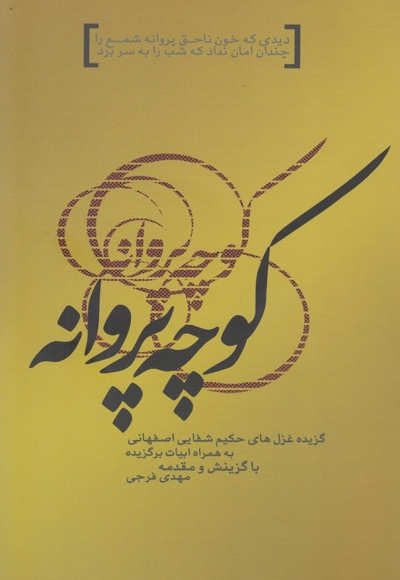 دیدی که خون ناحق پروانه شمع را
چندان امان نداد که شب را به سر برد
کوچه پروانه
کوچه پروانه
گزیده غزل های حکیم شفایی اصفهانی
به همراه ابیات برگزیده
با گزینش و مقدمه
مهدی فرجی